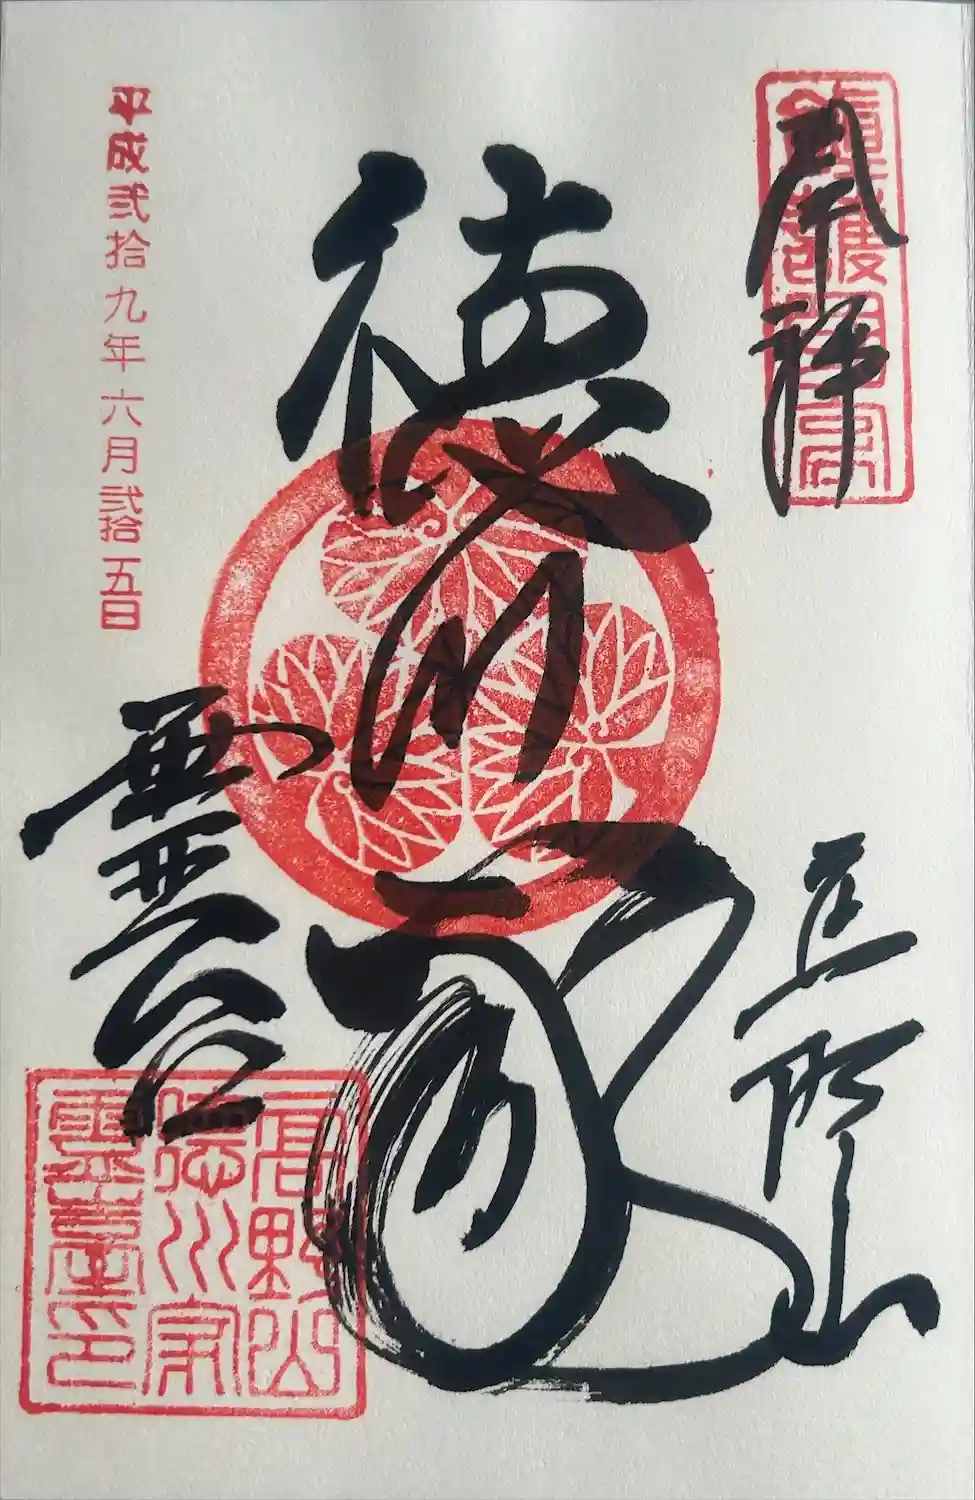 奉拝
高野山
徳川家
霊台
平成弐拾九年六月弐拾五日
高野山
徳川家
霊臺印